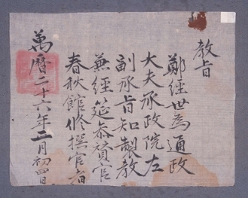 教旨
鄭經世爲通政
大夫承政院左
副承旨知製敎
兼經筵參贊官
春秋館修撰官者
萬曆二十六年二月初四日